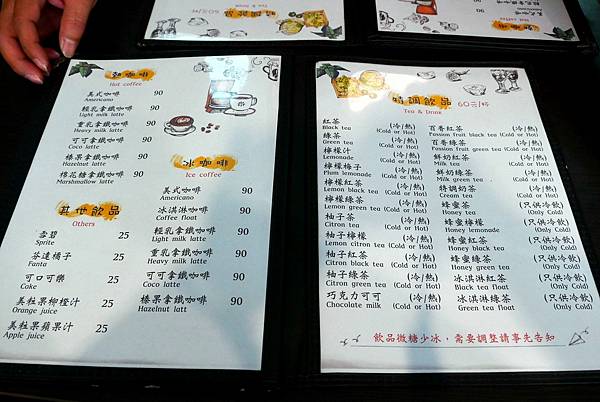 熱咖啡
Hot coffee
美式咖啡 90
Americano
輕乳拿鐵咖啡 90
Light milk latte
重乳拿鐵咖啡 90
Heavy milk latte
可可拿鐵咖啡 90
Coco latte
榛果拿鐵咖啡 90
Hazelnut latte
棉花糖拿鐵咖啡 90
Marshmallow latte
其他飲品
Others
雪碧 25
Sprite
芬達橘子 25
Fanta
可口可樂 25
Cake
美粒果柳橙汁 25
Orange juice
美粒果蘋果汁 25
Apple juice
冰咖啡
Ice coffee
美式咖啡 90
Americano
冰淇淋咖啡 90
Coffee float
輕乳拿鐵咖啡 90
Light milk latte
重乳拿鐵咖啡 90
Heavy milk latte
可可拿鐵咖啡 90
Coco latte
榛果拿鐵咖啡 90
Hazelnut latt
特調飲品 60元/杯
Tea & Drink
紅茶 (冷/熱)
Black tea (Cold or Hot)
綠茶 (冷/熱)
Green tea (Cold or Hot)
檸檬汁 (冷/熱)
Lemonade (Cold or Hot)
檸檬梅子 (冷/熱)
Plum lemonade (Cold or Hot)
檸檬紅茶 (冷/熱)
Lemon black tea (Cold or Hot)
檸檬綠茶 (冷/熱)
Lemon green tea (Cold or Hot)
柚子茶 (冷/熱)
Citron tea (Cold or Hot)
柚子檸檬 (冷/熱)
Lemon citron tea (Cold or Hot)
柚子紅茶 (冷/熱)
Citron black tea (Cold or Hot)
柚子綠茶 (冷/熱)
Citron green tea (Cold or Hot)
巧克力可可 (冷/熱)
Chocolate milk (Cold or Hot)
百香紅茶 (冷/熱)
Passion fruit black tea (Cold or Hot)
百香綠茶 (冷/熱)
Passion fruit green tea (Cold or Hot)
鮮奶紅茶 (冷/熱)
Milk tea (Cold or Hot)
鮮奶綠茶 (冷/熱)
Milk green tea (Cold or Hot)
特調奶茶 (冷/熱)
Cream tea (Cold or Hot)
蜂蜜茶 (只供冷飲)
Honey tea (Only Cold)
蜂蜜檸檬 (只供冷飲)
Honey lemonade (Only Cold)
蜂蜜紅茶 (只供冷飲)
Honey black tea (Only Cold)
蜂蜜綠茶 (只供冷飲)
Honey green tea (Only Cold)
冰淇淋紅茶 (只供冷飲)
Black tea float (Only Cold)
冰淇淋綠茶 (只供冷飲)
Green tea float (Only Cold)
飲品微糖少冰，需要調整請事先告知